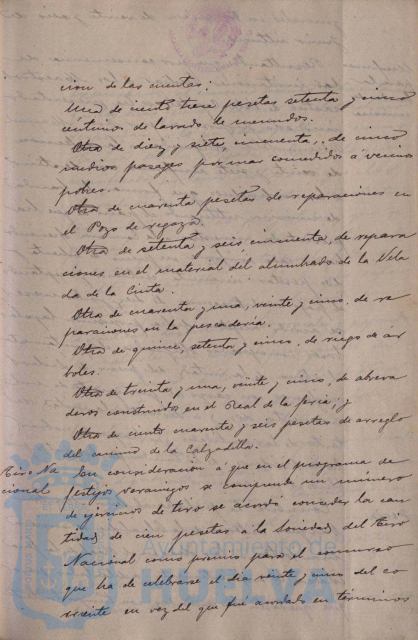 cion de las cuentas:
Una de ciento trece pesetas setenta y cinco
céntimos de lavado de menudos.
Otra de diez y siete, cincuenta, de cinco
medios pasages por mar concedidos á vecinos
pobres.
Otra de cuarenta pesetas de reparaciones en
el Pozo de
Otra de setenta y seis, cincuenta, de repara
ciones en el material del alumbrado de la Vela
da de la Cinta.
Otra de cuarenta y una, veinte y cinco, de re
paraciones en la pescadería.
Otra de quince, setenta y cinco, de riego de ar
boles.
Otra de treinta y una, veinte y cinco, de abreva
deros construidos en el Real de la feria; y
Otra de ciento cuarenta y seis pesetas de arreglo
del camino de la Calzadilla.
Tiro Na
cional
En consideración á que en el programa de
festejos veraniegos se comprende un número
de ejercicios de tiro se acordó conceder la can
tidad de cien pesetas á la Sociedad del Tiro
Nacional como premio para el concurso
que ha de celebrarse el dia veinte y cinco del co
rriente en vez del que fué acordado en términos
Ayuntamiento de
HUELVA